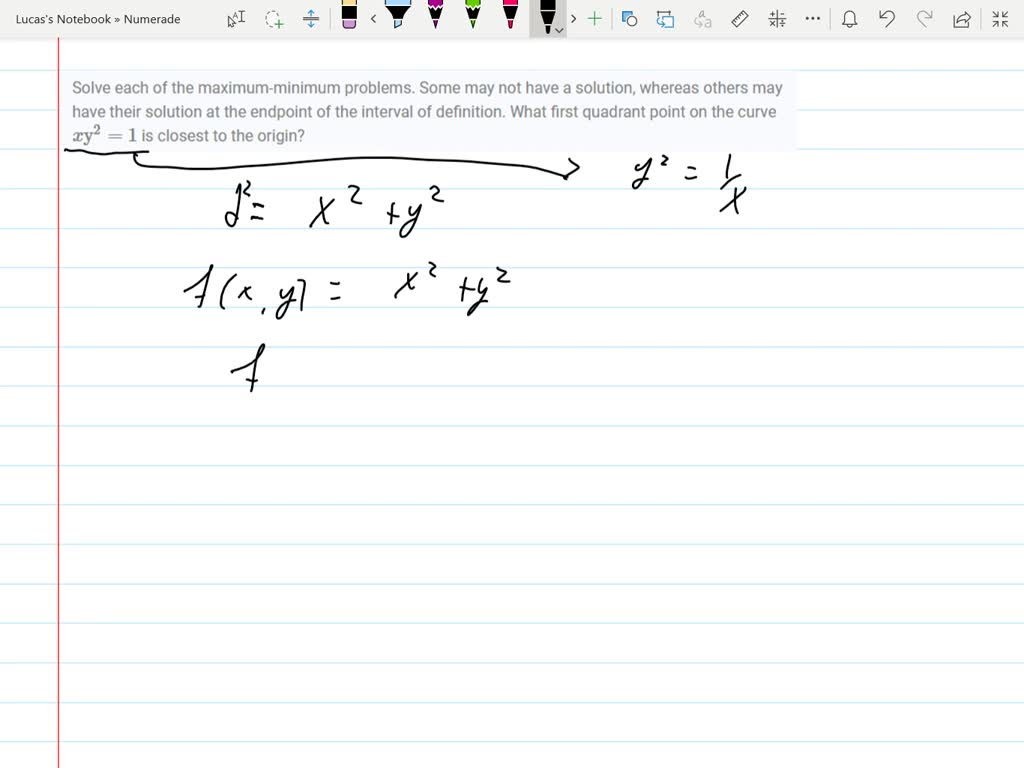 Lucas's Notebook » Numerade
Solve each of the maximum-minimum problems. Some may not have a solution, whereas others may
have their solution at the endpoint of the interval of definition. What first quadrant point on the curve
xy² = 1 is closest to the origin?
y² = 1/x
d² = x² + y²
f(x, y) = x² + y²
f